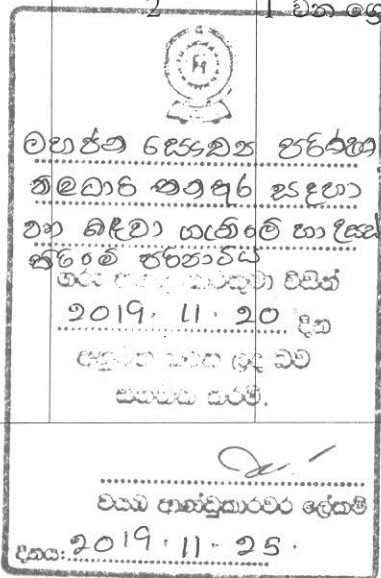 2 1 වන ශ්‍රේ
මහජන සෞඛ්‍ය පරීක්ෂණ
නිලධාරි තනතුර සඳහා
වන බඳවා ගැනීමේ හා උසස්
කිරීමේ පරිපාටිය
ගරු විසින්
2019. 11. 20 දින
අනුමත කරන ලද බව
සහතික කරමි.
වයඹ ආණ්ඩුකාරවර ලේකම්
දිනය: 2019. 11. 25.